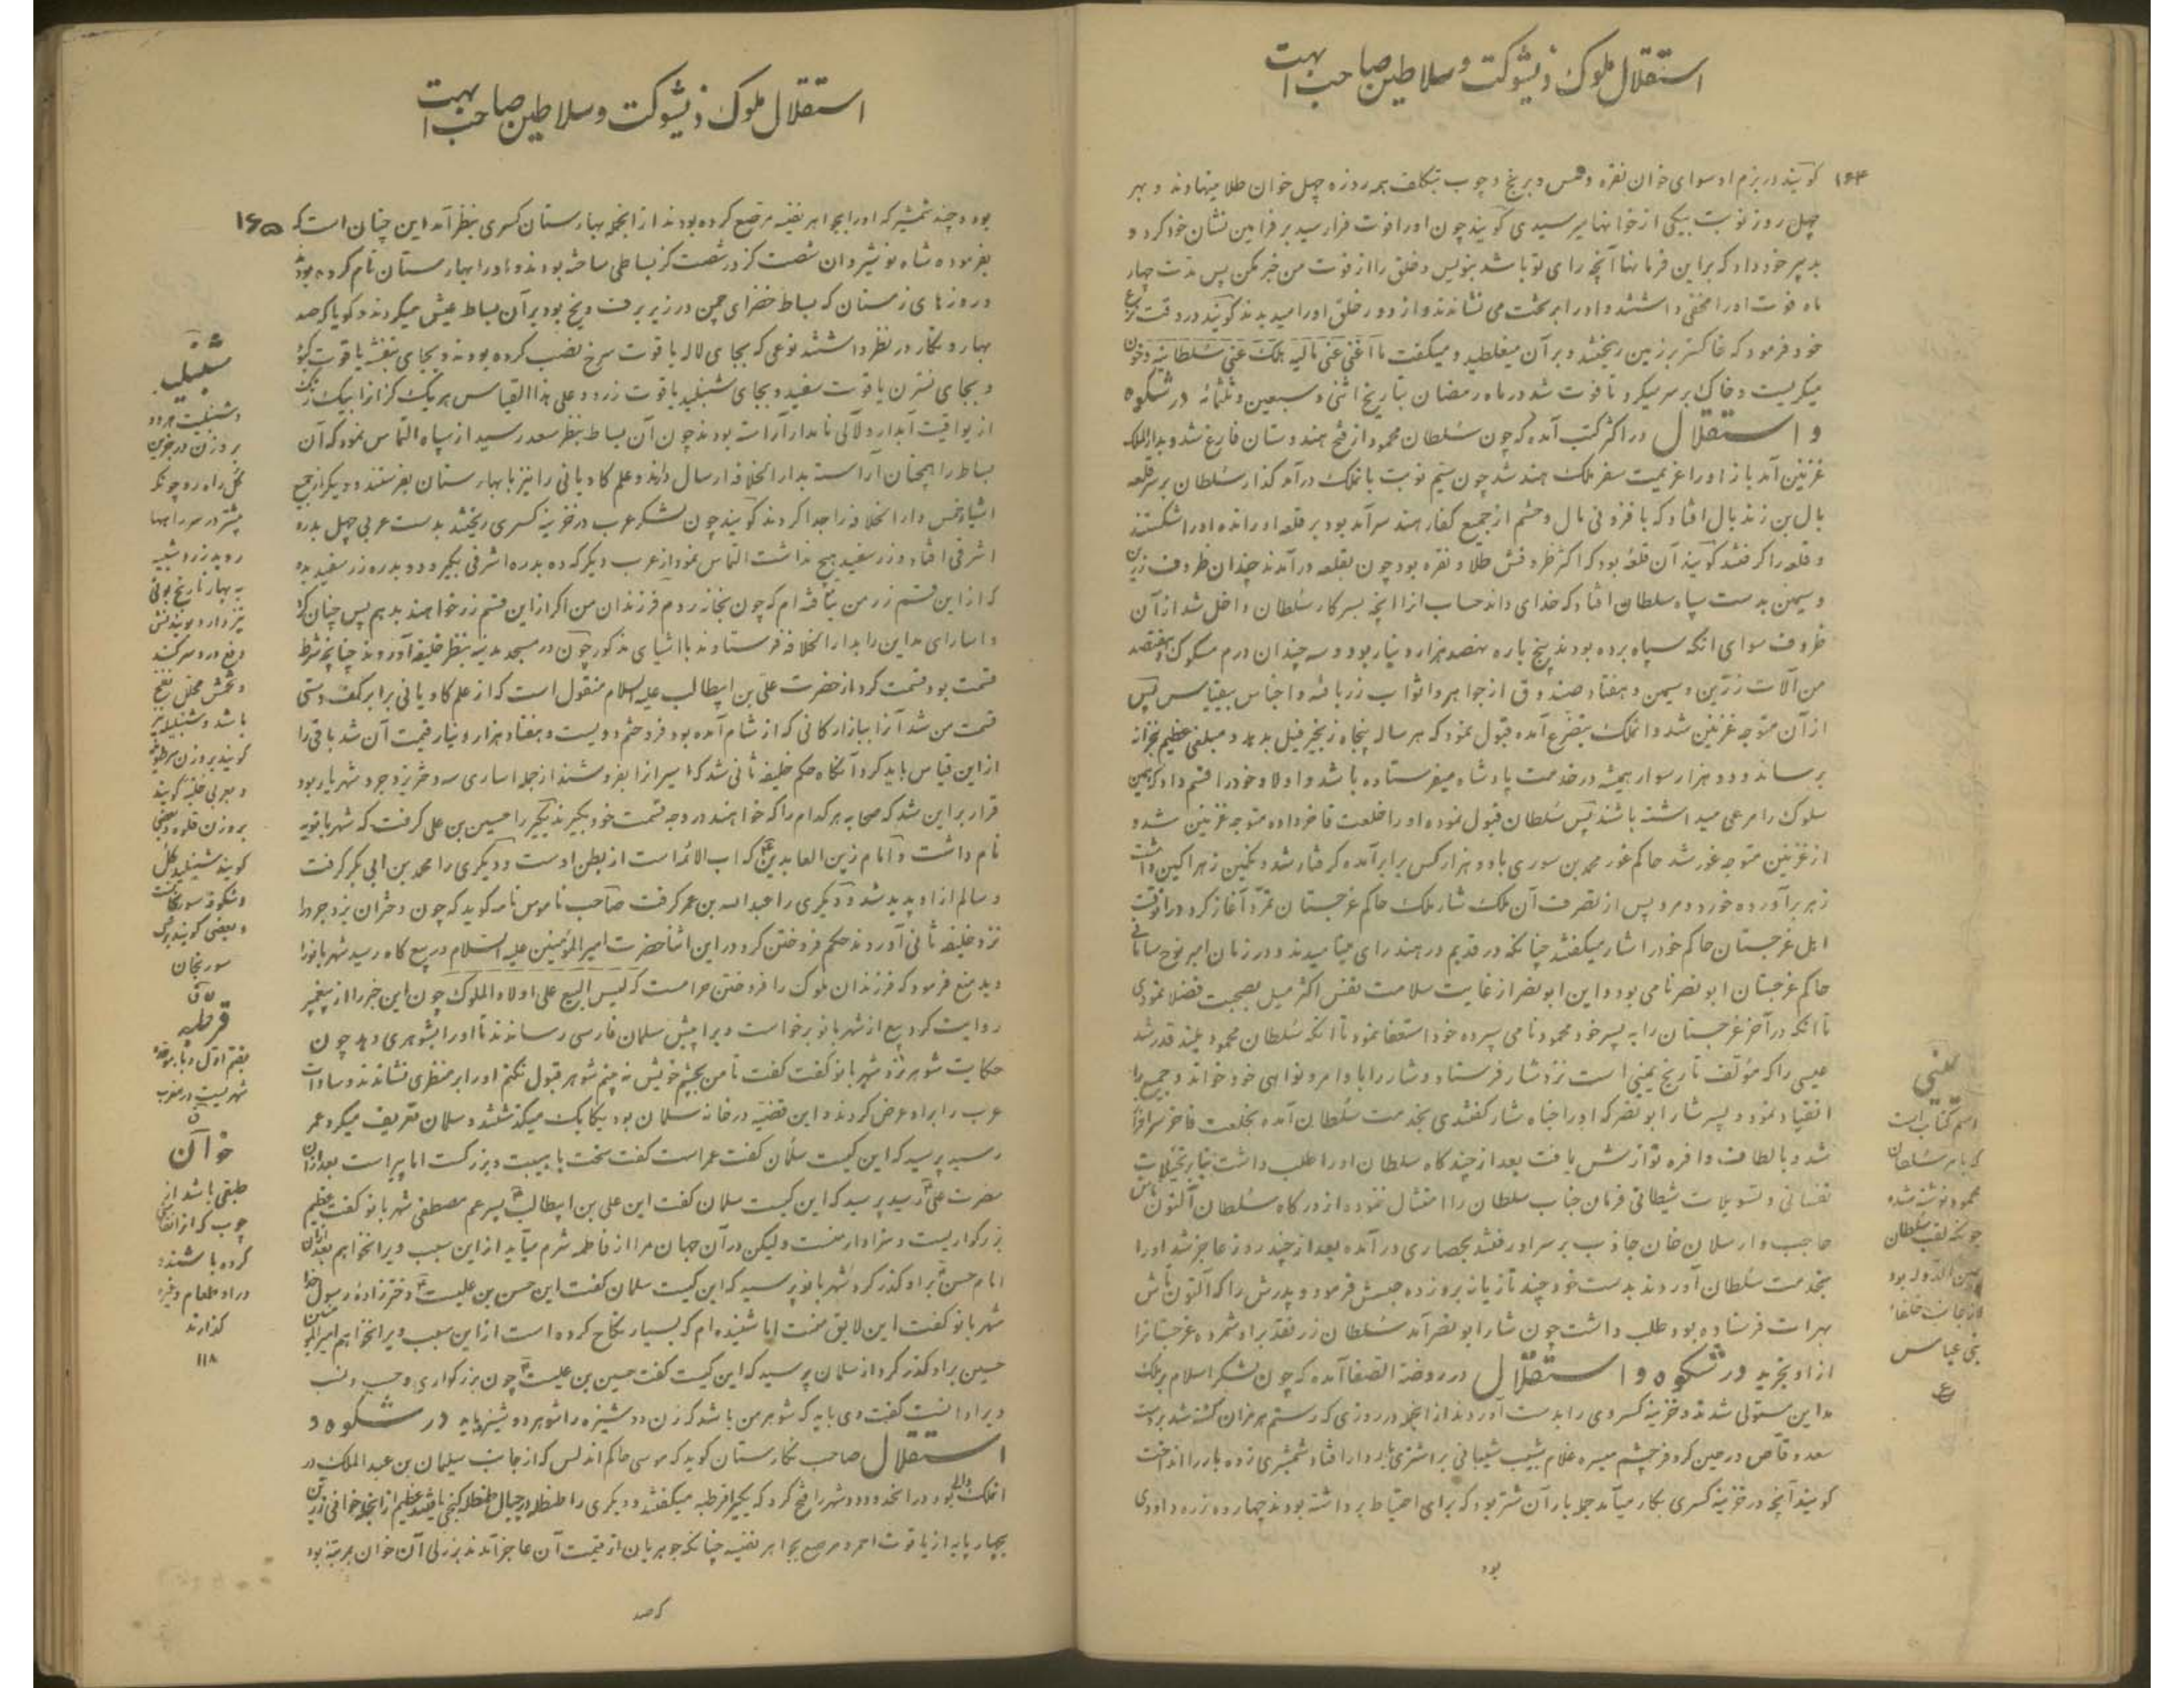 استقلال ملوک ذیشوکت و سلاطین صاحب ابهت
۱۶۴
گویند در بزم او سوای خوان نقره و مس و برنج و چوب بتکلف همه روزه چهل خوان طلا مینهادند و بهر
چهل روز نوبت بیکی از خوانها میرسیدی گویند چون او را فوت فرا رسید بر فرامین نشان خود کرد و
به پسر خود داد که بر این فرمانها آنچه رای تو باشد بنویس و خلق را از فوت من خبر مکن پس مدت چهار
ماه فوت او را مخفی داشتند و او را بر تخت می نشاندند و از دور خلق او را میدیدند گویند در وقت نزع
خود فرمود که خاکستر بر زمین ریختند و بر آن میغلطید و میگفت ما اغنی عنی مالیه هلک عنی سلطانیه و خون
میگریست و خاک بر سر میکرد تا فوت شد در ماه رمضان بتاریخ اثنی و سبعین و ثلثمائه در شکوه
و استقلال در اکثر کتب آمده که چون سلطان محمود از فتح هندوستان فارغ شد و بدار الملک
غزنین آمد باز او را عزیمت سفر ملک هند شد چون سیم نوبت بآنملک درآمد گذار سلطان بر سر قلعه
بال بن زندبال افتاد که بافزونی مال و حشم از جمیع کفار هند سرآمد بود بر قلعه او رانده او را شکستند
و قلعه را گرفتند گویند آن قلعه بود که اکثر ظروفش طلا و نقره بود چون بقلعه درآمدند چندان ظروف زرین
و سیمین بدست سپاه سلطان افتاد که خدای داند حساب از آنچه بسرکار سلطان داخل شد از آن
ظروف سوای آنکه سپاه برده بودند پنج باره نهصد هزار دینار بود و سه چندان درم مسکوک و هفتصد
من آلات زرین و سیمین و هفتاد صندوق از جواهر و اثواب زربافته و اجناس بیقیاس پس
از آن متوجه غزنین شد و آنملک بتضرع آمده قبول نمود که هر ساله پنجاه زنجیر فیل بدهد و مبلغی عظیم بخزانه
برساند و دو هزار سوار همیشه در خدمت پادشاه میفرستاده باشد و اولاد خود را قسم داد که همین
سلوک را مرعی میداشته باشند پس سلطان قبول نموده او را خلعت فاخر داده متوجه غزنین شد و
از غزنین متوجه غور شد حاکم غور محمد بن سوری با ده هزار کس برابر آمده گرفتار شد و نگین زهراگین داشت
زهر برآورده خورد و مرد پس از تصرف آن ملک شار ملک حاکم غرجستان تمرد آغاز کرد در آنوقت
اهل غرجستان حاکم خود را شار میگفتند چنانکه در قدیم در هند رای مینامیدند و در زمان امیر نوح سامانی
حاکم غرجستان ابو نصر نامی بود و این ابو نصر از غایت سلامت نفس اکثر میل بصحبت فضلا نمودی
تا آنکه در آخر غرجستان را به پسر خود محمود نامی سپرده خود استعفا نمود تا آنکه سلطان محمود بلند قدر شد
عیسی را که مؤلف تاریخ یمینی است نزد شار فرستاد و شار را باوامر و نواهی خود خواند و جمیع را
انقیاد نمود و پسر شار ابو نصر که او را شاه شار گفتندی بخدمت سلطان آمده بخلعت فاخر سرافراز
شد و بالطاف وافره نوازش یافت بعد از چندگاه سلطان او را طلب داشت بنا بر تخیلات
نفسانی و تسویلات شیطانی فرمان جناب سلطان را امتثال ننمود و از درگاه سلطان آلتون تاش
حاجب و ارسلان خان جاذب بر سر او رفتند بحصاری درآمده بعد از چند روز عاجز شد او را
بخدمت سلطان آوردند بدست خود چند تازیانه بر وی زده حبسش فرمود و پدرش را که آلتون تاش
بهرات فرستاده بود طلب داشت چون شار ابو نصر آمد سلطان زر نقد بر او شمرده غرجستانرا
از او بخرید در شکوه و استقلال در روضة الصفا آمده که چون لشکر اسلام بر ملک
مداین مستولی شدند و خزینه کسروی را بدست آوردند از آنجمله در روزی که رستم هرمزان کشته شد بر دست
سعد وقاص در حین گرد فرچشم میسره غلام شبیب شیبانی بر اشتری باردار افتاد شمشیری زده بار را انداخت
گویند آنچه در خزینه کسری بکار میآمد جمله بار آن شتر بود که برای احتیاط برداشته بودند چهارده زره داودی
بود
یمینی
اسم کتاب است
که بامر سلطان
محمود نوشته شده
چونکه لقب سلطان
یمین الدوله بود
از جانب خلفاء
بنی عباس
ع
استقلال ملوک ذیشوکت و سلاطین صاحب ابهت
۱۶۵
بود و چند شمشیر که او را بجواهر نفیسه مرصع کرده بودند از آنجمله بهارستان کسری بنظر آمد این چنان است که
بفرموده شاه نوشیروان شصت گز در شصت گز بساطی ساخته بودند و او را بهارستان نام کرده بودند
در روزهای زمستان که بساط خضرای چمن در زیر برف و یخ بود بر آن بساط عیش میکردند و گویا که صد
بهار و نگار در نظر داشتند نوعی که بجای لاله یاقوت سرخ نصب کرده بودند و بجای بنفشه یاقوت کبود
و بجای نسترن یاقوت سفید و بجای شنبلید یاقوت زرد و علی هذا القیاس هر یک گز آنرا بیک رنگ
از یواقیت آبدار و لآلی نامدار آراسته بودند چون آن بساط بنظر سعد رسید از سپاه التماس نمود که آن
بساط را همچنان آراسته بدار الخلافه ارسال دارند و علم کاویانی را نیز با بهارستان بفرستند و دیگر از جمیع
اشیاء خمس دار الخلافه را جدا کردند گویند چون لشکر عرب در خزینه کسری ریختند بدست عربی چهل بدره
اشرفی افتاد و زر سفید هیچ نداشت التماس نمود از عرب دیگر که ده بدره اشرفی بگیر و دو بدره زر سفید بده
که از این قسم زر من نیافته ام که چون بخانه روم فرزندان من اگر از این قسم زر خواهند بدهم پس چنان کرد
و اسارای مداین را بدار الخلافه فرستادند با اشیای مذکور چون در مسجد مدینه بنظر خلیفه آوردند چنانچه شرط
قسمت بود قسمت کرد از حضرت علی بن ابیطالب علیه السلام منقول است که از علم کاویانی برابر کف دستی
قسمت من شد آنرا ببازارگانی که از شام آمده بود فروختم دویست و هفتاد هزار دینار قیمت آن شد باقی را
از این قیاس باید کرد آنگاه حکم خلیفه ثانی شد که اسیرانرا بفروشند از جمله اساری سه دختر یزدجرد شهریار بود
قرار بر این شد که صحابه هر کدام را که خواهند در وجه قسمت خود بگیرند یکیرا حسین بن علی گرفت که شهربانویه
نام داشت و امام زین العابدین ع که اب الائمه است از بطن اوست و دیگری را محمد بن ابی بکر گرفت
و سالم از او پدید شد و دیگری را عبدالله بن عمر گرفت صاحب ناموس نامه گوید که چون دختران یزدجرد را
نزد خلیفه ثانی آوردند حکم فروختن کرد در این اثنا حضرت امیر المؤمنین علیه السلام در بیع گاه رسید شهربانو را
دید منع فرمود که فرزندان ملوک را فروختن حرامست که لیس البیع علی اولاد الملوک چون این خبر را از پیغمبر
روایت کرد بیع از شهربانو برخواست و برا پیش سلمان فارسی رساندند تا او را بشوهری دهد چون
حکایت شوهر نزد شهربانو گفت گفت تا من بچشم خویش نه بینم شوهر قبول نکنم او را بر منظری نشاندند و سادات
عرب را بر او عرض کردند و این قضیه در خانه سلمان بود یکایک میگذشتند و سلمان تعریف میکرد عمر
رسید پرسید که این کیست سلمان گفت عمر است گفت سخت با هیبت و بزرگست اما پیر است بعد از آن
حضرت علی ع رسید پرسید که این کیست سلمان گفت این علی بن ابیطالب ع پسر عم مصطفی شهربانو گفت عظیم
بزرگواریست و سزاوار منست ولیکن در آن جهان مرا از فاطمه شرم میآید از این سبب ویرا نخواهم بعد از آن
امام حسن ع بر او گذر کرد شهربانو پرسید که این کیست سلمان گفت این حسن بن علیست ع دخترزاده رسول خدا
شهربانو گفت این لایق منست اما شنیده ام که بسیار نکاح کرده است از این سبب ویرا نخواهم امیر المؤمنین
حسین بر او گذر کرد از سلمان پرسید که این کیست گفت حسین بن علیست ع چون بزرگواری و حسب و نسب
ویرا دانست گفت وی باید که شوهر من باشد که زن دوشیزه را شوهر دوشیزه باید در شکوه و
استقلال صاحب نگارستان گوید که موسی حاکم اندلس که از جانب سلیمان بن عبد الملک در
آنملک والی بود در آنحدود دو شهر را فتح کرد که یکیرا قرطبه میگفتند و دیگری را طنطله در جبال طنطله گنجی یافتند عظیم از آنجمله خوانی زرین
بچهار پایه از یاقوت احمر و مرصع بجواهر نفیسه چنانکه جوهریان از قیمت آن عاجز آمدند بزرگی آن خوان بمرتبه بود
که صد
شنبلید
و شنبلیت هر دو
بروزن
گل راه رو چونکه
بیشتر در سر راهها
روید زرد و شبیه
به بهار نارنج بوئی
تیز دارد بوئیدنش
دفع درد سر کند
و تخمش
باشد و شنبلید نیز
گویند بروزن
و بعربی حلبه گویند
بروزن
گویند شنبلید گل
و شکوفه سورنجانست
و بعضی گویند برگ
سورنجان
ق
قرطبه
بضم اول و باء موحده
شهریست در مغرب
ق
خوان
طبقی باشد از
چوب که از آنقاشی
کرده باشند و
در او طعام و غیره
گذارند
۱۱۸